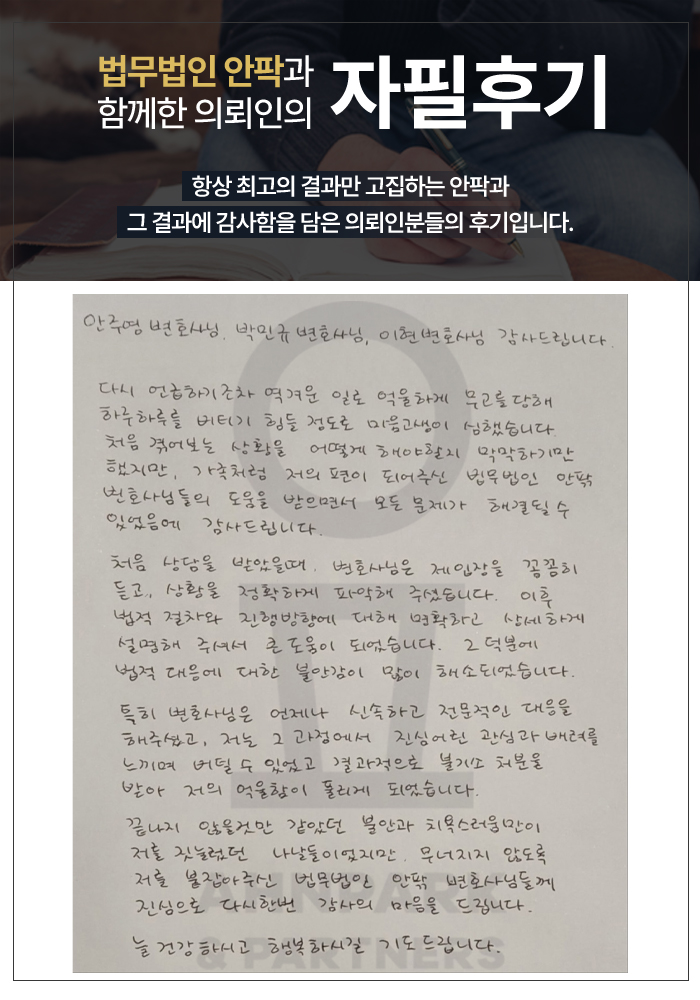 법무법인 안팍과
함께한 의뢰인의
자필후기
항상 최고의 결과만 고집하는 안팍과
그 결과에 감사함을 담은 의뢰인분들의 후기입니다.
안주영 변호사님, 박민규 변호사님, 이현 변호사님 감사드립니다.
다시 언급하기조차 역겨운 일로 억울하게 무고를 당해
하루하루를 버티기 힘들 정도로 마음고생이 심했습니다.
처음 겪어보는 상황을 어떻게 해야할지 막막하기만
했지만, 가족처럼 저의 편이 되어주신 법무법인 안팍
변호사님들의 도움을 받으면서 모든 문제가 해결될 수
있었음에 감사드립니다.
처음 상담을 받았을때, 변호사님은 제 입장을 꼼꼼히
듣고, 상황을 정확하게 파악해 주셨습니다. 이후
법적 절차와 진행방향에 대해 명확하고 상세하게
설명해 주셔서 큰 도움이 되었습니다. 그 덕분에
법적 대응에 대한 불안감이 많이 해소되었습니다.
특히 변호사님은 언제나 신속하고 전문적인 대응을
해주셨고, 저는 그 과정에서 진심어린 관심과 배려를
느끼며 버틸 수 있었고 결과적으로 불기소 처분을
받아 저의 억울함이 풀리게 되었습니다.
끝나지 않을것만 같았던 불안과 치욕스러움만이
저를 짓눌렀던 나날들이였지만, 무너지지 않도록
저를 붙잡아주신 법무법인 안팍 변호사님들께
진심으로 다시한번 감사의 마음을 드립니다.
늘 건강하시고 행복하시길 기도드립니다.
AHNPARK
& PARTNERS